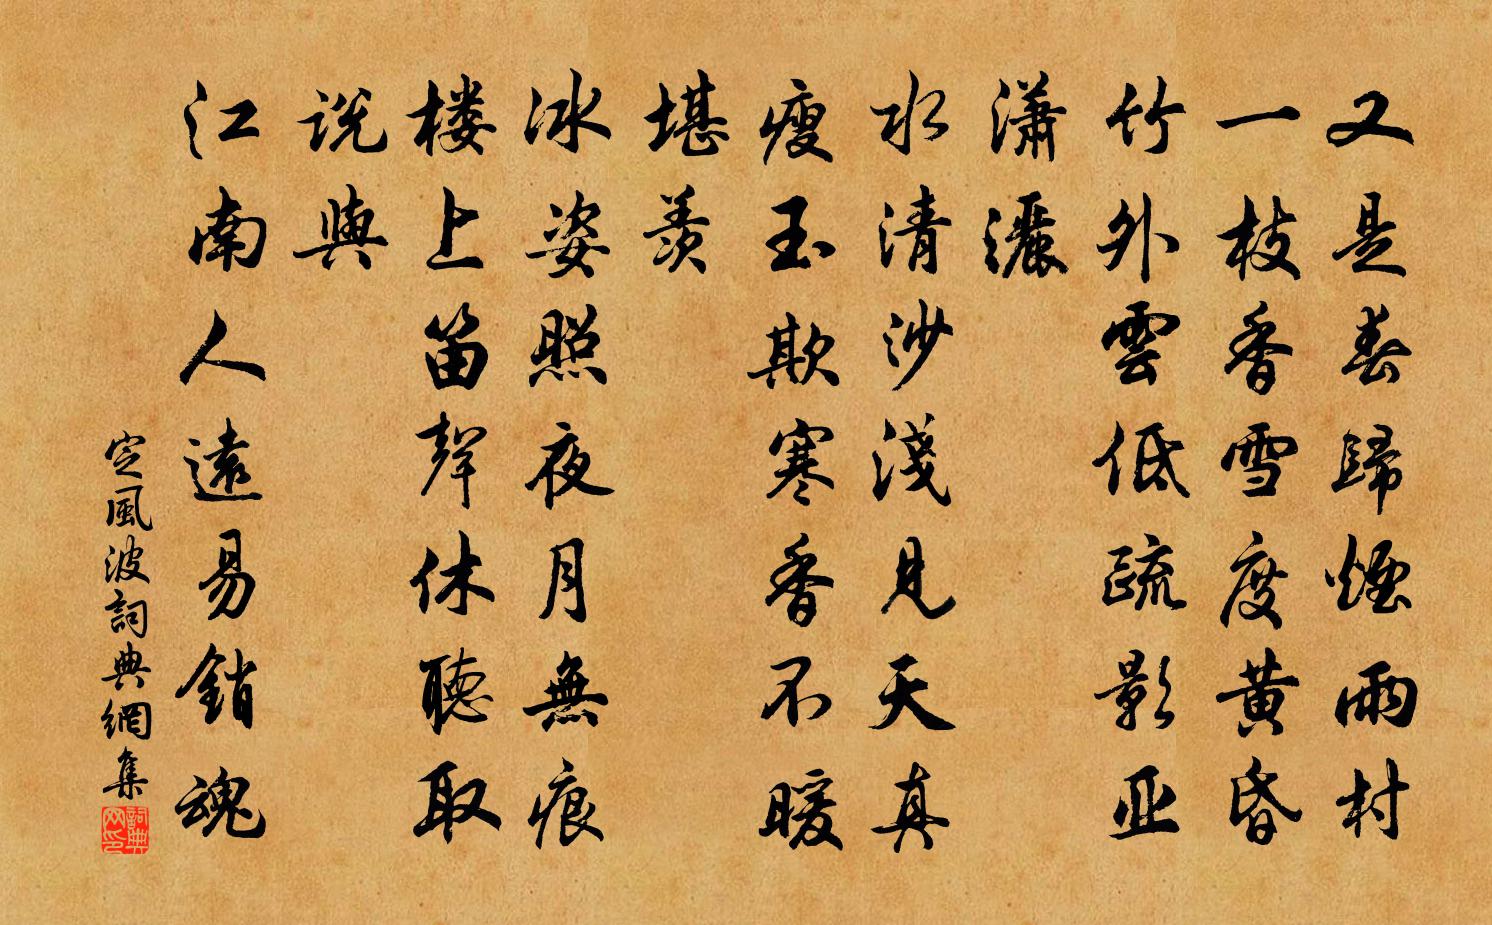 又是春歸煙雨村
一枝香雪度黄昏
竹外雲低疏影亚
潇灑
水清沙淺見天真
瘦玉欺寒香不暖
堪羨
冰姿照夜月無痕
楼上笛聲休聽取
説與
江南人遠易銷魂
定風波詞典網集
詞典网印